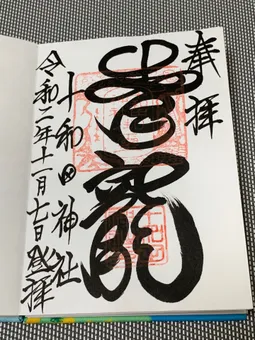 奉拝
青龍
十和田神社
令和二年十一月七日登拝